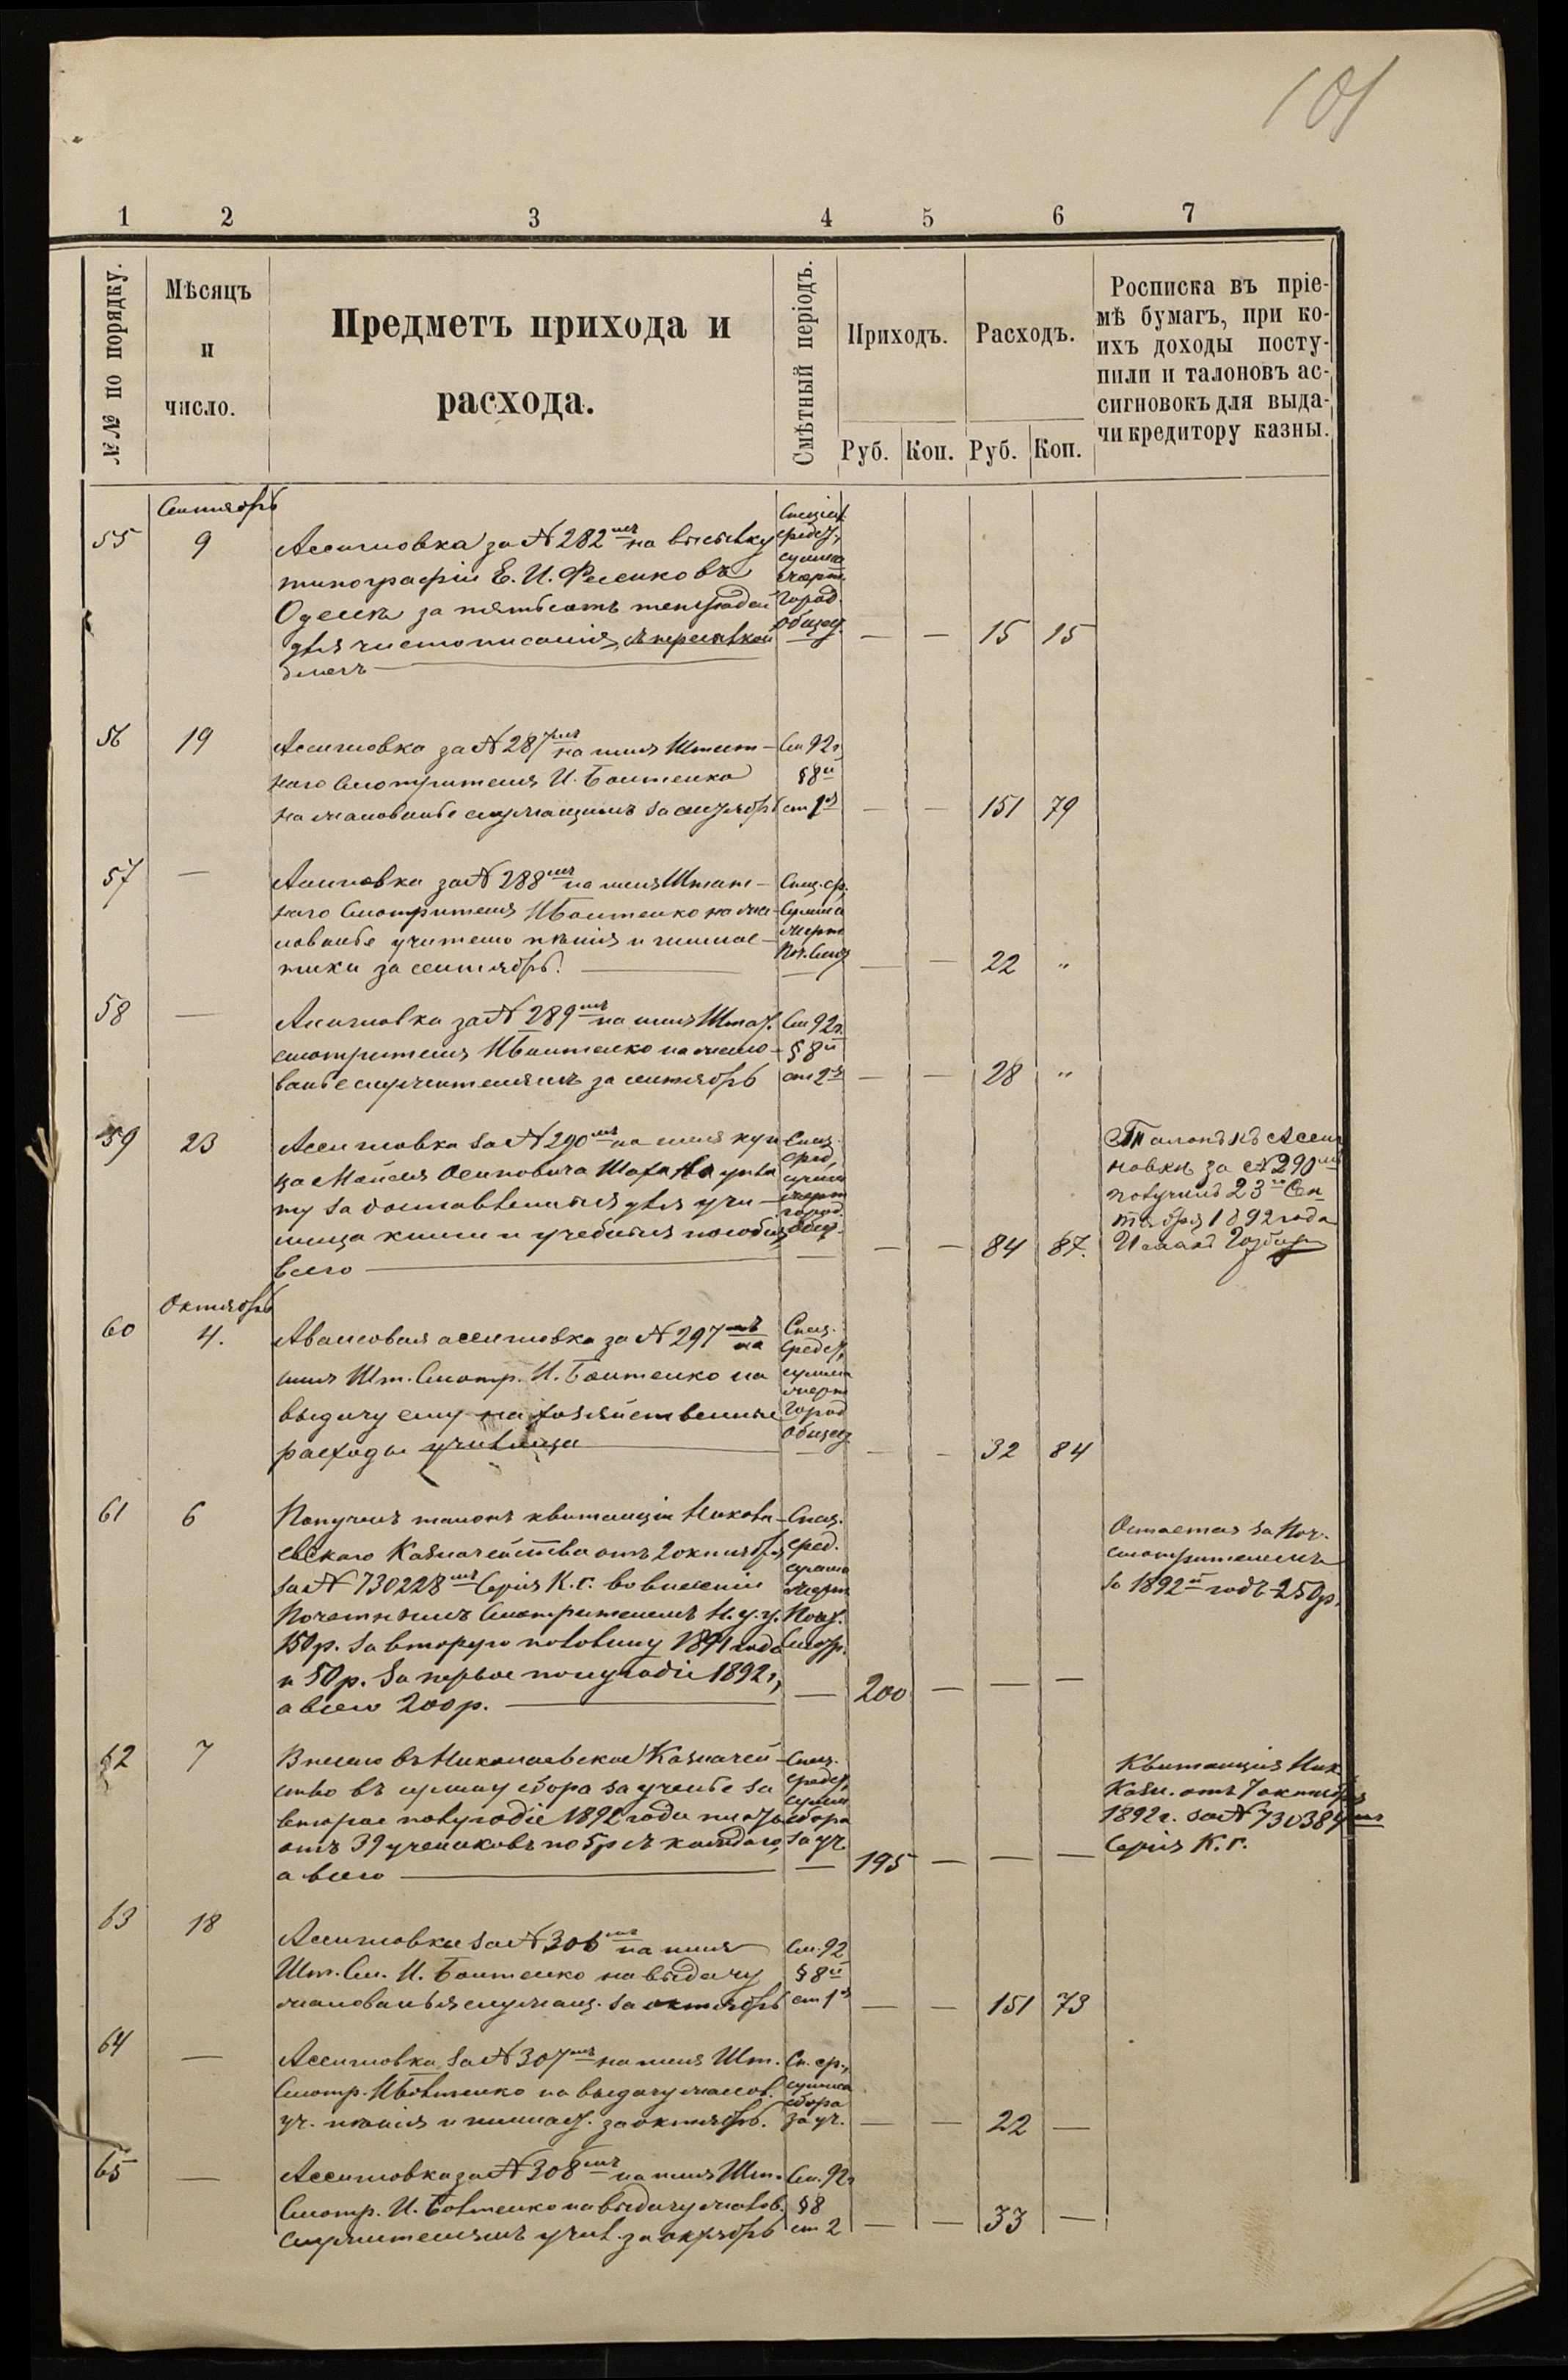 101
1 2 3 4 5 6 7
№№ по порядку.
Мѣсяцъ
и
число.
Предметъ прихода и
расхода.
Смѣтный періодъ.
Приходъ.
Руб. Коп.
Расходъ.
Руб. Коп.
Росписка въ пріе-
мѣ бумагъ, при ко-
ихъ доходы посту-
пили и талоновъ ас-
сигновокъ для выда-
чи кредитору казны.
Сентябрь
55 9 Ассигновка за № 282мъ на высылку
типографіи Е. И. Фесенко въ
Одессѣ за пятьсотъ тетрадей
для чистописанія, съ пересылкой
Спеціал.
средст.
сумма
город.
Общест.
— — 15 15
56 19 Ассигновка за № 287мъ на имя Штат-
наго Смотрителя И. Баитенко
на жалованье служащимъ за сентябрь
См 92 г
§ 8й
ст 1я
— — 151 79
57 — Ассигновка за № 288мъ на имя Штат-
наго Смотрителя И Баитенко на жа-
лованье учителю пѣнія и гимнас-
тики за сентябрь.
Спец. ср.
Сумма
жерт
Поч. Смот
— — 22 "
58 — Ассигновка за № 289мъ на имя Штат.
смотрителя И Баитенко на жало-
ванье служителямъ за сентябрь
См 92 г.
§ 8й
ст 2я
— — 28 "
59 23 Ассигновка за № 290мъ на имя куп
ца Мойсея Осиповича
ту за доставленныя для учи-
лища книги и учебныя пособія,
всего
Спец.
сред,
сумма
жерт
город.
общ.
— — 84 87.
Талонъ къ Ассиг
новкѣ за № 290мъ
получилъ 23го Сен
тября 1892 года
Исаакъ
Октябрь
60 4. Авансовая ассигновка за № 297мъ на
имя Шт. Смотр. И. Баитенко на
выдачу ему на хозяйственные
расходы училища
Спец.
Средст,
сумма
жерт
Город
Общест
— — 32 84
61 6 Полученъ талонъ квитанціи Никола-
евскаго Казначейства отъ 2 октября
за № 730228мъ Серія К. Г. во внесеніи
Почетнымъ Смотрителемъ Н. у. у.
150 р. за вторую половину 1891 года
и 50 р. за первое полугодіе 1892 г,
а всего 200 р.
Спец.
сред.
сумма
жерт
Почт.
Смотр.
— 200 — — —
Остается за Поч.
смотрителемъ
за 1892й годъ 250 р.
62 7 Внесено въ Николаевское Казначей-
ство въ сумму сбора за ученье за
второе полугодіе 1892 года платы
отъ 39 учениковъ по 5 р съ каждаго,
а всего
Спец.
средст,
сумм
сбора
за уч
— 195 — — —
Квитанція Ник.
Казн. отъ 7 октября
1892 г. за № 730389мъ
Серія К. Г.
63 18 Ассигновка за № 306мъ на имя
Шт. См. И. Баитенко на выдачу
жалованья служащ. за октябрь
См. 92
§ 8й
ст 1я
— — 151 73
64 — Ассигновка за № 307мъ на имя Шт.
Смотр. И Баитенко на выдачу жалов.
уч. пѣнія и гимнаст. за октябрь.
Сп. ср.,
сумма
сбора
за уч.
— — 22 —
65 — Ассигновка за № 308мъ на имя Шт.
Смотр. И. Баитенко на выдачу жалов.
служителямъ учил. за октябрь
См. 92 г
§ 8
ст 2
— — 33 —